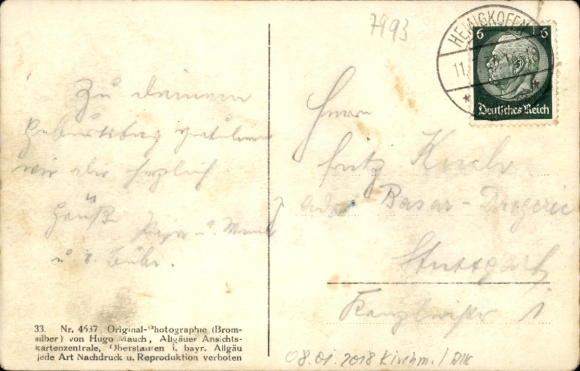 7993
HEMIGKOFEN
11.
6 6
Deutsches Reich
Zu deinem
Geburtstag gratulieren
wir aber herzlich
Papa u. Mama
u. 
Herrn
Fritz Koch
Basar-Drogerie
Stuttgart
1
33. Nr. 4537. Original-Photographie (Brom-
silber) von Hugo Mauch, Allgäuer Ansichts-
kartenzentrale, Oberstaufen i. bayr. Allgäu
jede Art Nachdruck u. Reproduktion verboten
08.01.2018 Kirchm. / DIK